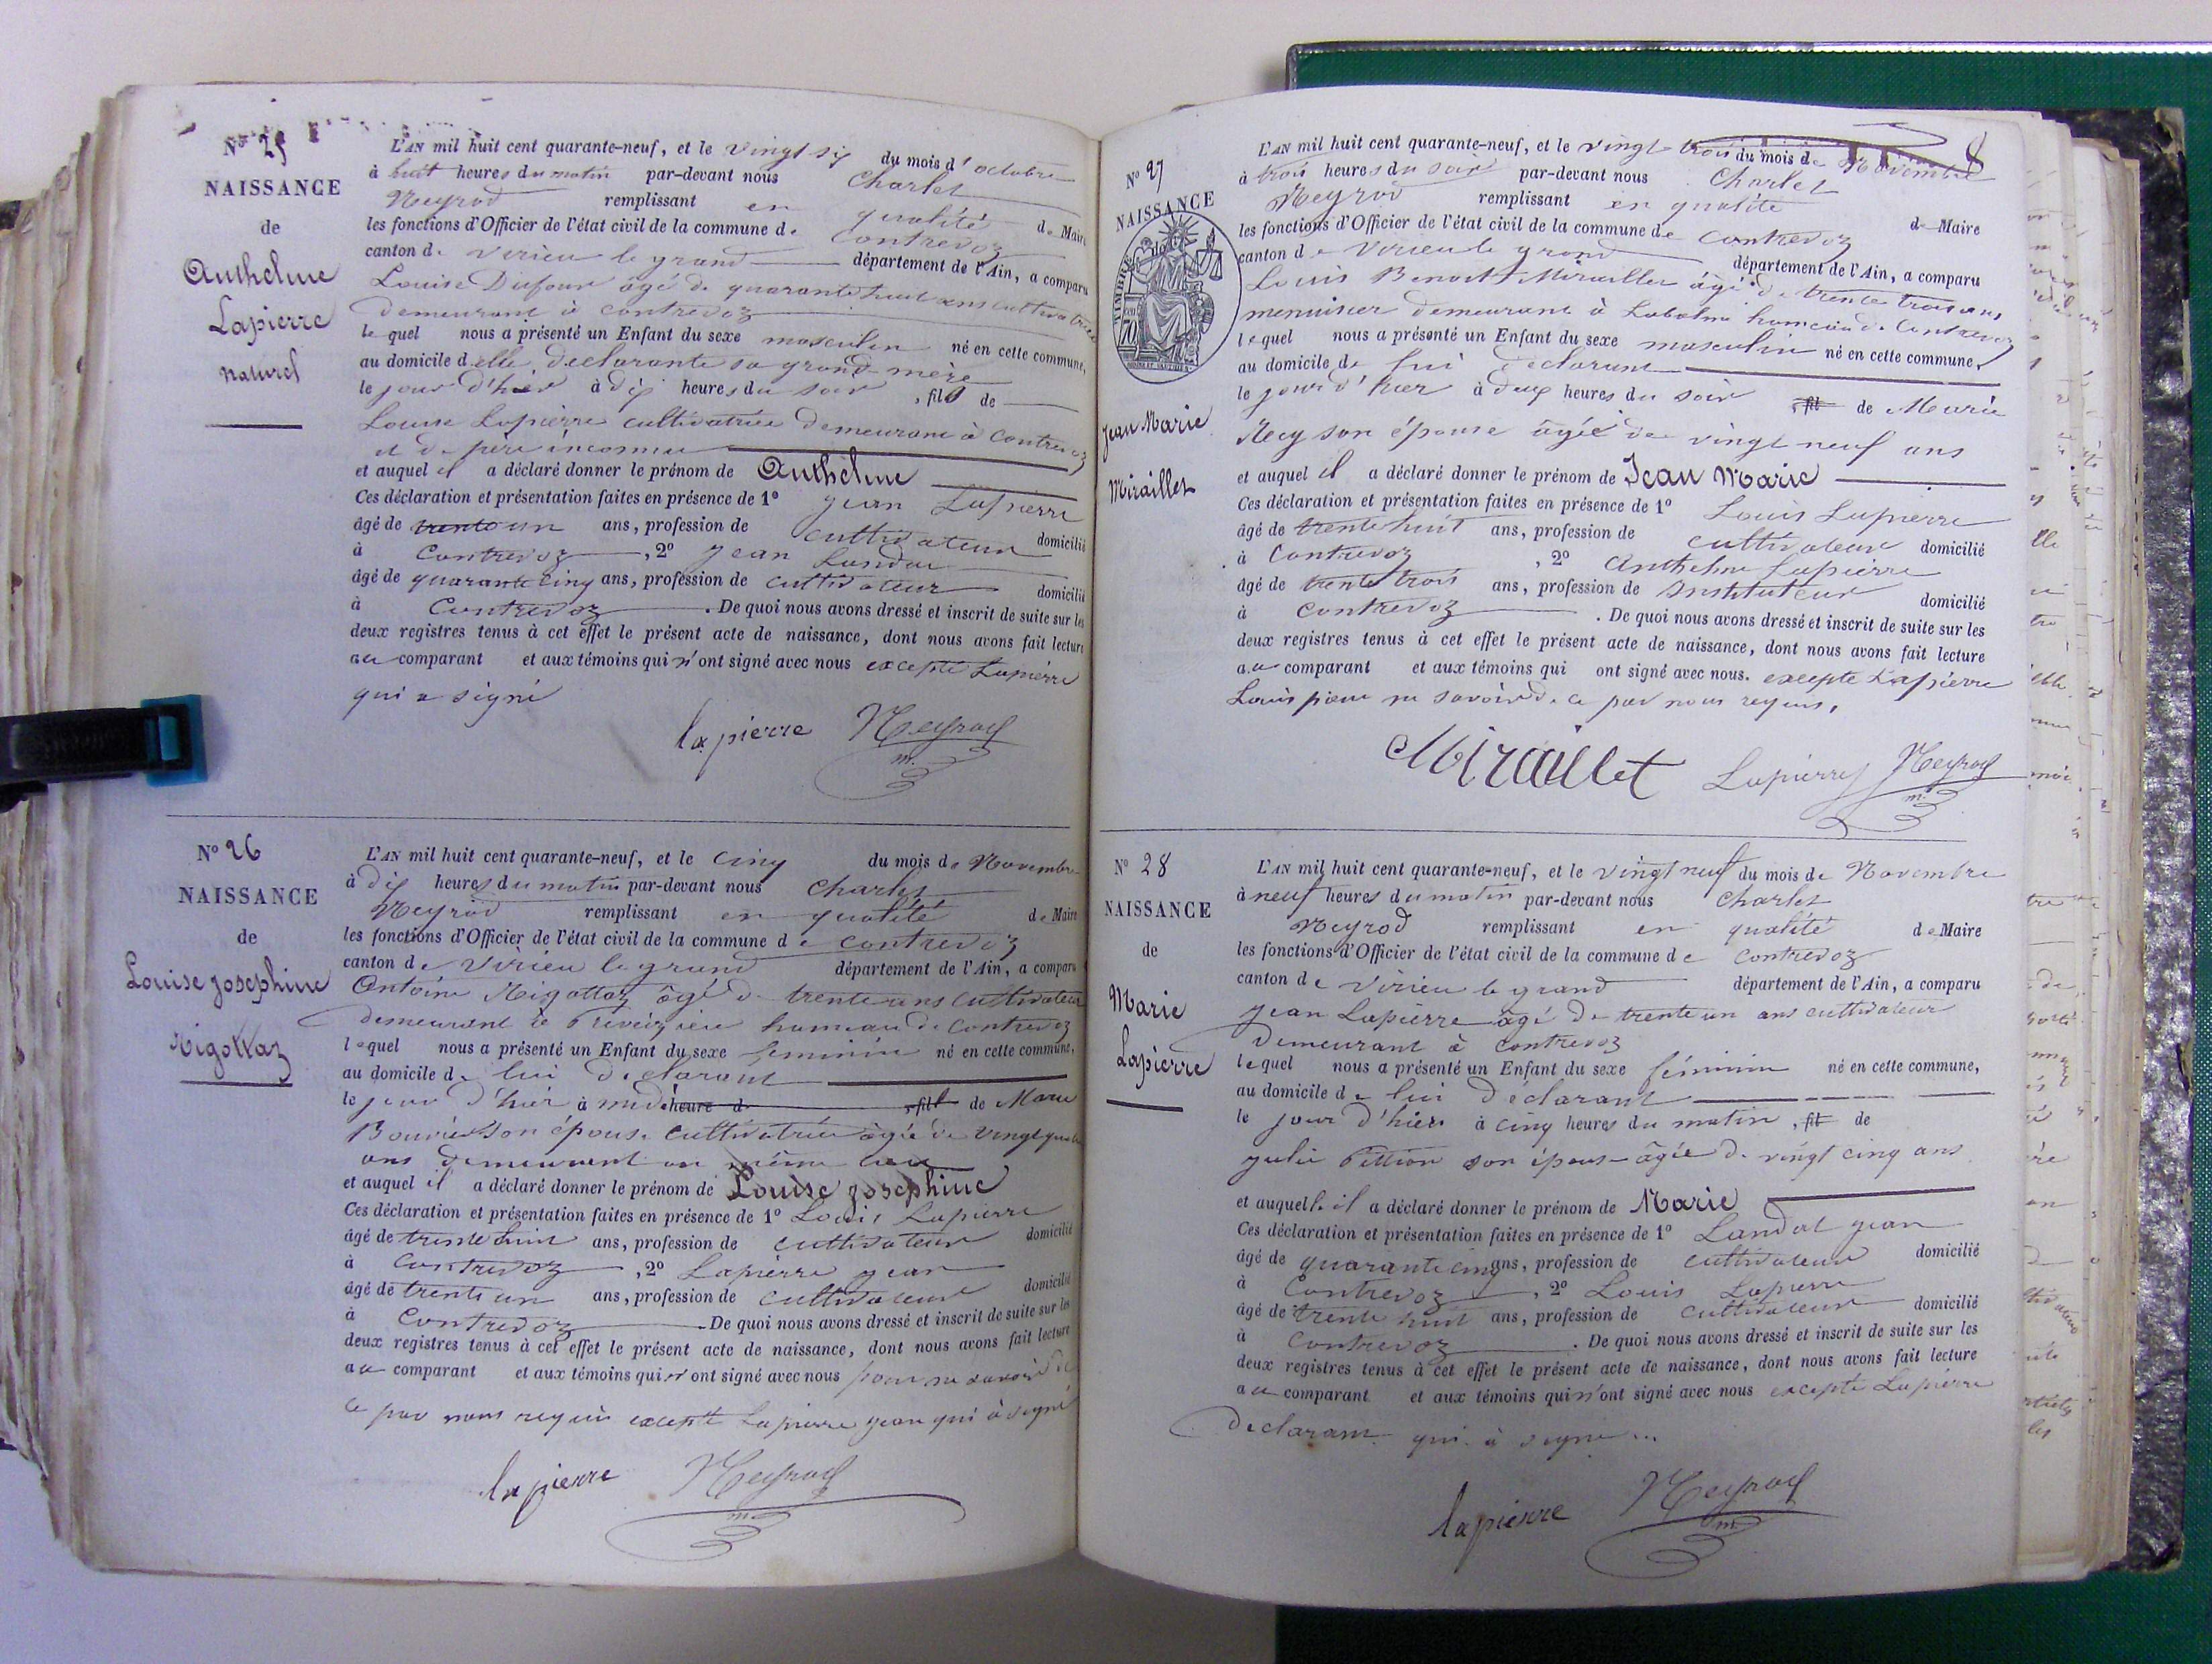 Nº 25
NAISSANCE
de
Anthelme
Lapierre
naturel
L'AN mil huit cent quarante-neuf, et le vingt six du mois d'octobre
à huit heures du matin par-devant nous Charles
Neyrod remplissant en qualité de Maire
les fonctions d'Officier de l'état civil de la commune de Contrevoz
canton de virieu le grand département de l'Ain, a comparu
Louise Dufour âgé de quarante huit ans cultivatrice
demeurant à contrevoz
lequel nous a présenté un Enfant du sexe masculin né en cette commune,
au domicile d'elle, déclarante sa grand mère
le jour d'hier à dix heures du soir, fils de
Louise Lapierre cultivatrice demeurant à Contrevoz
et de père inconnu
et auquel il a déclaré donner le prénom de Anthelme
Ces déclaration et présentation faites en présence de 1º jean Lapierre
âgé de trente un ans, profession de cultivateur domicilié
à Contrevoz, 2º jean Landar
âgé de quarante cinq ans, profession de cultivateur domicilié
à Contrevoz. De quoi nous avons dressé et inscrit de suite sur les
deux registres tenus à cet effet le présent acte de naissance, dont nous avons fait lecture
au comparant et aux témoins qui n'ont signé avec nous excepté Lapierre
qui a signé
lapierre Neyrod
m.
Nº 26
NAISSANCE
de
Louise josephine
Rigottaz
L'AN mil huit cent quarante-neuf, et le cinq du mois de Novembre
à dix heures du matin par-devant nous Charles
Neyrod remplissant en qualité de Maire
les fonctions d'Officier de l'état civil de la commune de contrevoz
canton de Virieu le grand département de l'Ain, a comparu
Antoine Rigottaz âgé de trente ans cultivateur
demeurant à hameau de contrevoz
lequel nous a présenté un Enfant du sexe feminin né en cette commune,
au domicile de lui déclarant
le jour d'hier à midi heure d , fil de Marie
Bouvier son épouse cultivatrice âgée de vingt quatre
ans demeurant au même lieu
et auquel il a déclaré donner le prénom de Louise josephine
Ces déclaration et présentation faites en présence de 1º Louis Lapierre
âgé de trente huit ans, profession de cultivateur domicilié
à Contrevoz, 2º Lapierre jean
âgé de trente un ans, profession de cultivateur domicilié
à Contrevoz. De quoi nous avons dressé et inscrit de suite sur les
deux registres tenus à cet effet le présent acte de naissance, dont nous avons fait lecture
au comparant et aux témoins qui n'ont signé avec nous pour ne savoir de
ce par nous requis excepté Lapierre jean qui à signé
lapierre Neyrod
m.
8
Nº 27
NAISSANCE
TIMBRE
70
Jean Marie
Miraillet
L'AN mil huit cent quarante-neuf, et le vingt trois du mois de Novembre
à trois heures du soir par-devant nous Charles
Neyrod remplissant en qualité de Maire
les fonctions d'Officier de l'état civil de la commune de Contrevoz
canton de Virieu le grand département de l'Ain, a comparu
Louis Benoit Miraillet âgé de trente trois ans
menuisier demeurant à Labalme hameau de Contrevoz
lequel nous a présenté un Enfant du sexe masculin né en cette commune,
au domicile de lui déclarant
le jour d'hier à deux heures du soir, fil de Marie
Recy son épouse âgée de vingt neuf ans
et auquel il a déclaré donner le prénom de Jean Marie
Ces déclaration et présentation faites en présence de 1º Louis Lapierre
âgé de trente huit ans, profession de cultivateur domicilié
à Contrevoz, 2º Anthelme Lapierre
âgé de trente trois ans, profession de Instituteur domicilié
à Contrevoz. De quoi nous avons dressé et inscrit de suite sur les
deux registres tenus à cet effet le présent acte de naissance, dont nous avons fait lecture
au comparant et aux témoins qui ont signé avec nous. excepté Lapierre
Louis pour ne savoir de ce par nous requis,
Miraillet Lapierre Neyrod
m.
Nº 28
NAISSANCE
de
Marie
Lapierre
L'AN mil huit cent quarante-neuf, et le vingt neuf du mois de Novembre
à neuf heures du matin par-devant nous Charles
Neyrod remplissant en qualité de Maire
les fonctions d'Officier de l'état civil de la commune de Contrevoz
canton de Virieu le grand département de l'Ain, a comparu
jean Lapierre âgé de trente un ans cultivateur
demeurant à Contrevoz
lequel nous a présenté un Enfant du sexe féminin né en cette commune,
au domicile de lui déclarant
le jour d'hier à cinq heures du matin, fil de
julie Pittion son épouse âgée de vingt cinq ans
et auquelle il a déclaré donner le prénom de Marie
Ces déclaration et présentation faites en présence de 1º Landar jean
âgé de quarante cinq ans, profession de cultivateur domicilié
à Contrevoz, 2º Louis Lapierre
âgé de trente huit ans, profession de cultivateur domicilié
à Contrevoz. De quoi nous avons dressé et inscrit de suite sur les
deux registres tenus à cet effet le présent acte de naissance, dont nous avons fait lecture
au comparant et aux témoins qui n'ont signé avec nous excepté Lapierre
déclarant qui à signé
lapierre Neyrod
m.